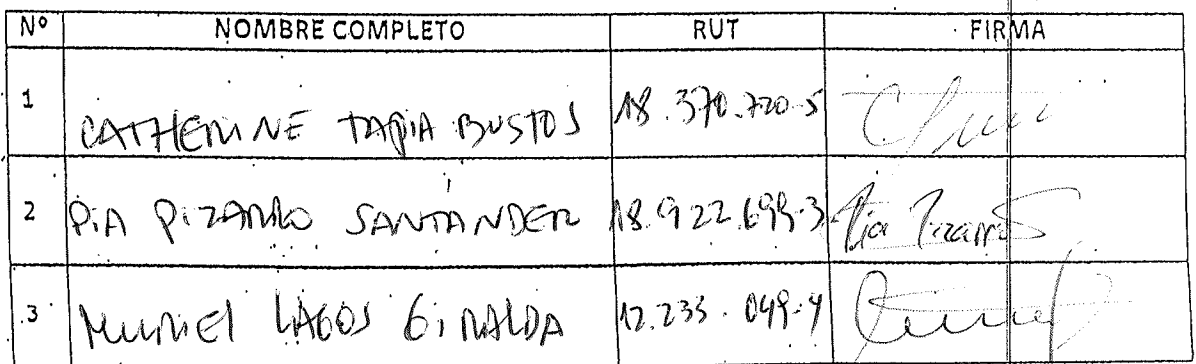 Nº NOMBRE COMPLETO RUT FIRMA
1 CATHERINE TAPIA BUSTOS 18.370.720-5
2 PIA PIZARRO SANTANDER 18.922.699-3 Pia Pizarro S
3 MURIEL LAGOS GIRALDA 12.233.049-4